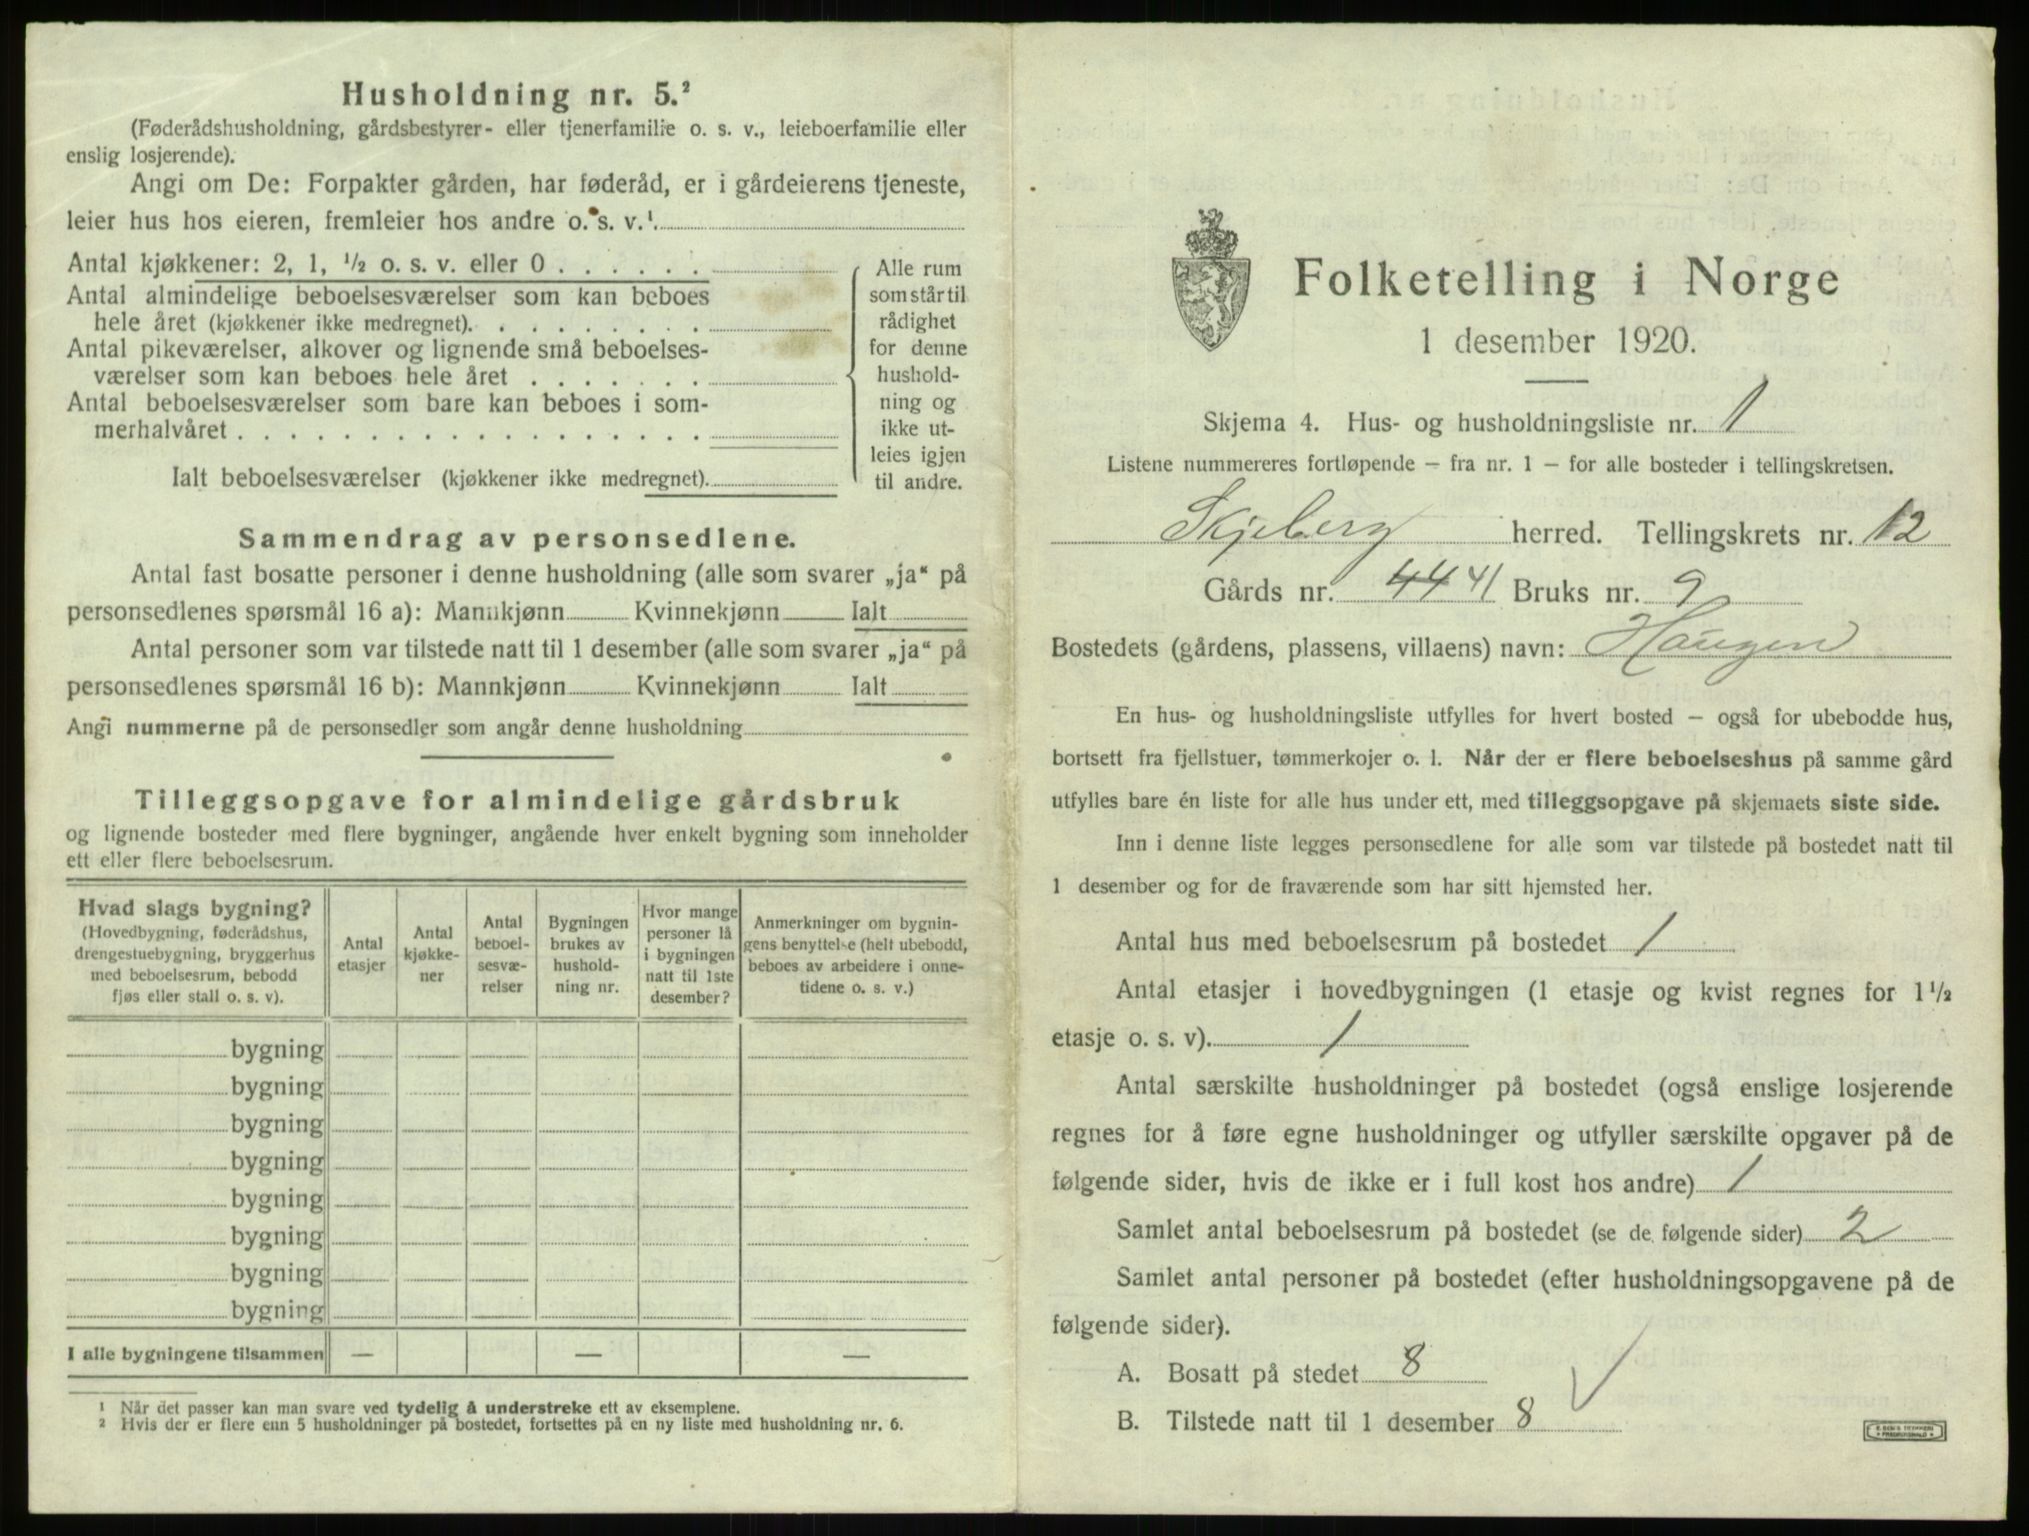 Husholdning nr. 5.²
(Føderådshusholdning, gårdsbestyrer- eller tjenerfamilie o. s. v., leieboerfamilie eller
enslig losjerende).
Angi om De: Forpakter gården, har føderåd, er i gårdeierens tjeneste,
leier hus hos eieren, fremleier hos andre o. s. v.¹
Antal kjøkkener: 2, 1, ½ o. s. v. eller 0 . . . . . .
Antal almindelige beboelsesværelser som kan beboes
hele året (kjøkkener ikke medregnet). . . . . . . . .
Antal pikeværelser, alkover og lignende små beboelses-
værelser som kan beboes hele året . . . . . . .
Antal beboelsesværelser som bare kan beboes i som-
merhalvåret . . . . . . . . . . . . . . . . . .
Ialt beboelsesværelser (kjøkkener ikke medregnet).
Alle rum
som står til
rådighet
for denne
hushold-
ning og
ikke ut-
leies igjen
til andre.
Sammendrag av personsedlene.
Antal fast bosatte personer i denne husholdning (alle som svarer „ja“ på
personsedlenes spørsmål 16 a): Mannkjønn Kvinnekjønn Ialt
Antal personer som var tilstede natt til 1 desember (alle som svarer „ja“ på
personsedlenes spørsmål 16 b): Mannkjønn Kvinnekjønn Ialt
Angi nummerne på de personsedler som angår denne husholdning
Tilleggsopgave for almindelige gårdsbruk
og lignende bosteder med flere bygninger, angående hver enkelt bygning som inneholder
ett eller flere beboelsesrum.
Hvad slags bygning?
(Hovedbygning, føderådshus,
drengestuebygning, bryggerhus
med beboelsesrum, bebodd
fjøs eller stall o. s. v).
Antal
etasjer
Antal
kjøkke-
ner
Antal
beboel-
sesvæ-
relser
Bygningen
brukes av
hushold-
ning nr.
Hvor mange
personer lå
i bygningen
natt til 1ste
desember?
Anmerkninger om bygnin-
gens benyttelse (helt ubebodd,
beboes av arbeidere i onne-
tidene o. s. v.)
bygning
bygning
bygning
bygning
bygning
bygning
bygning
bygning
I alle bygningene tilsammen — — —
¹ Når det passer kan man svare ved tydelig å understreke ett av eksemplene.
² Hvis der er flere enn 5 husholdninger på bostedet, fortsettes på en ny liste med husholdning nr. 6.
Folketelling i Norge
1 desember 1920.
Skjema 4. Hus- og husholdningsliste nr. 1
Listene nummereres fortløpende – fra nr. 1 – for alle bosteder i tellingskretsen.
Skjeberg herred. Tellingskrets nr. 12
Gårds nr. 44 41 Bruks nr. 9
Bostedets (gårdens, plassens, villaens) navn: Haugen
En hus- og husholdningsliste utfylles for hvert bosted – også for ubebodde hus,
bortsett fra fjellstuer, tømmerkojer o. l. Når der er flere beboelseshus på samme gård
utfylles bare én liste for alle hus under ett, med tilleggsopgave på skjemaets siste side.
Inn i denne liste legges personsedlene for alle som var tilstede på bostedet natt til
1 desember og for de fraværende som har sitt hjemsted her.
Antal hus med beboelsesrum på bostedet 1
Antal etasjer i hovedbygningen (1 etasje og kvist regnes for 1½
etasje o. s. v). 1
Antal særskilte husholdninger på bostedet (også enslige losjerende
regnes for å føre egne husholdninger og utfyller særskilte opgaver på de
følgende sider, hvis de ikke er i full kost hos andre) 1
Samlet antal beboelsesrum på bostedet (se de følgende sider) 2
Samlet antal personer på bostedet (efter husholdningsopgavene på de
følgende sider).
A. Bosatt på stedet 8
B. Tilstede natt til 1 desember 8